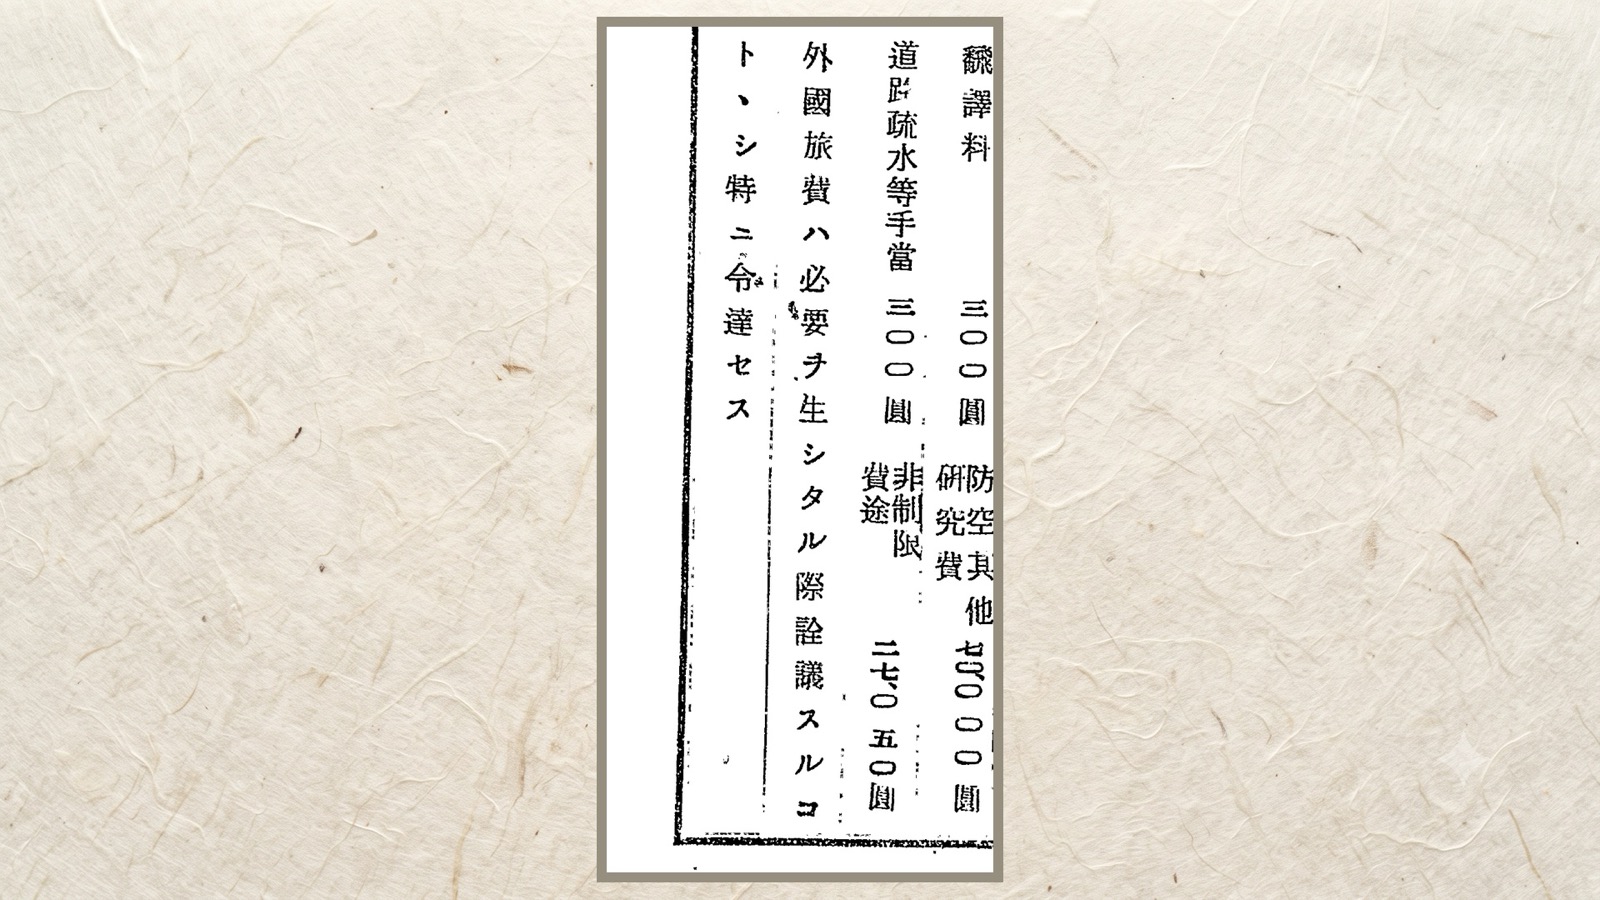 飜譯料 三〇〇圓 防空其他研究費 七、〇〇〇〇〇圓
道路疏水等手當 三〇〇圓 非制限費途 二七、〇五〇圓
外國旅費ハ必要ヲ生シタル際詮議スルコ
トヽシ特ニ令達セス